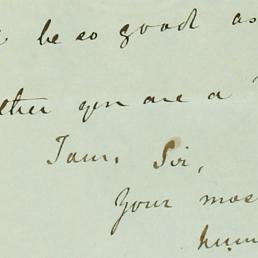 be so good as
you are a
I am, Sir,
Your mos
hum